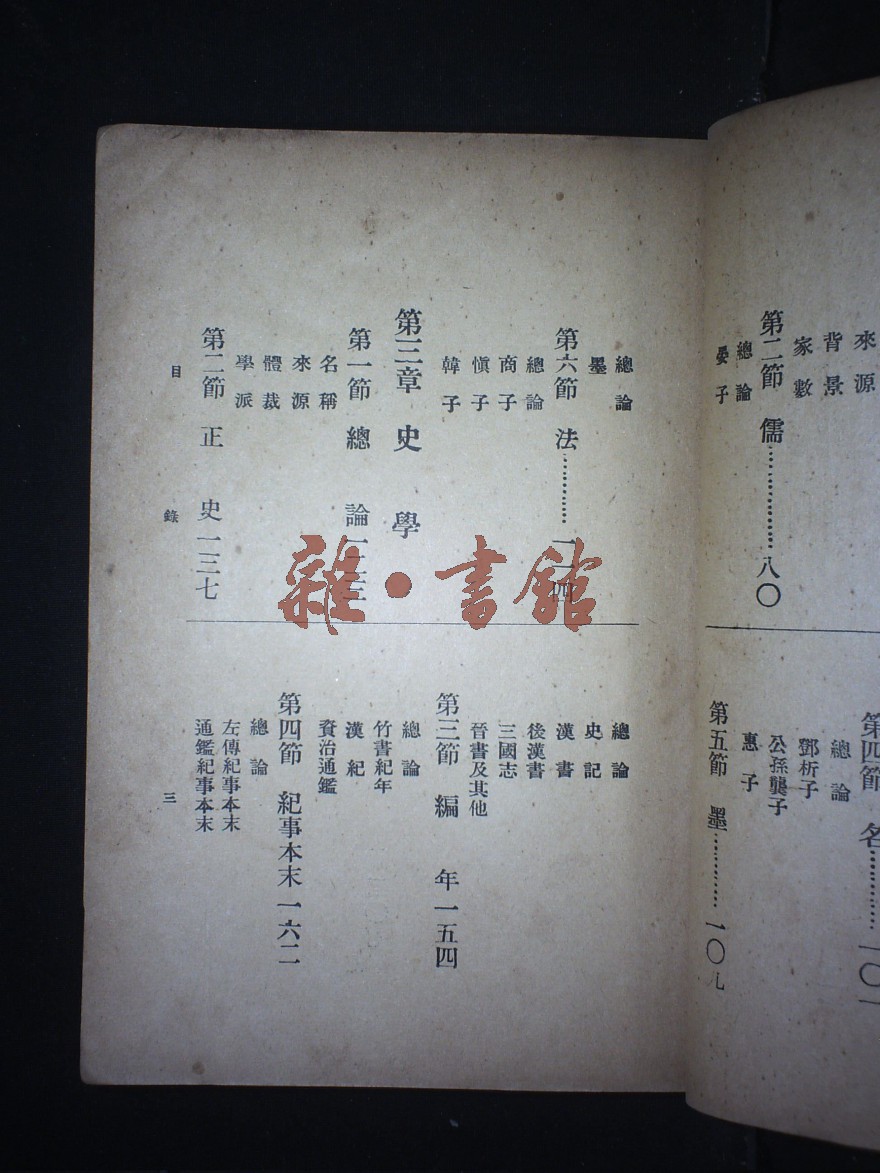 來源
背景
家數
第二節 儒………………八〇
總論
晏子
第四節 名……………一〇一
總論
鄧析子
公孫龔子
惠子
第五節 墨……………一〇九
總論
墨
第六節 法……………一一四
總論
商子
愼子
韓子
第三章 史學
第一節 總論一二三
名稱
來源
體裁
學派
第二節 正史一三七
總論
史記
漢書
後漢書
三國志
晉書及其他
第三節 編年一五四
總論
竹書紀年
漢紀
資治通鑑
第四節 紀事本末一六二
總論
左傳紀事本末
通鑑紀事本末
目錄
三
雜·書館